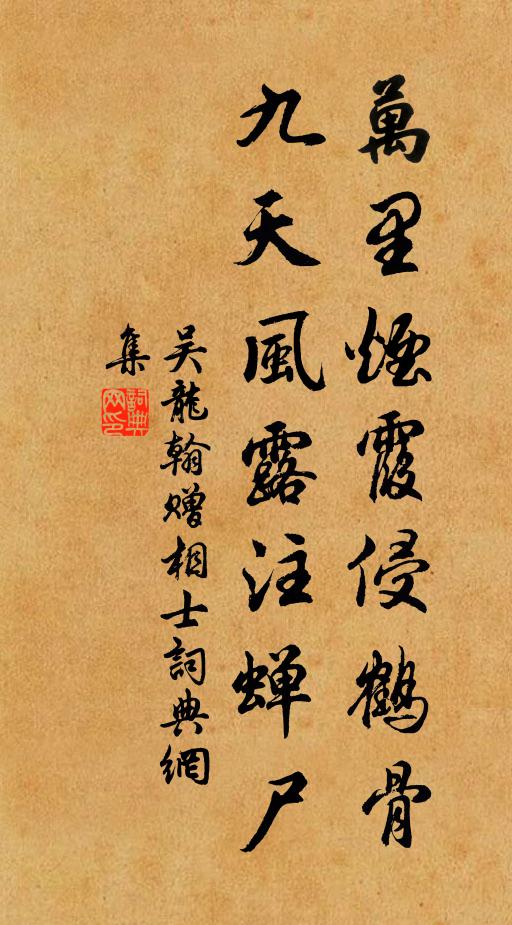 萬里煙霞侵鶴骨
九天風露注蝉尸
吴龍翰赠相士詞典網
集
詞典
网印